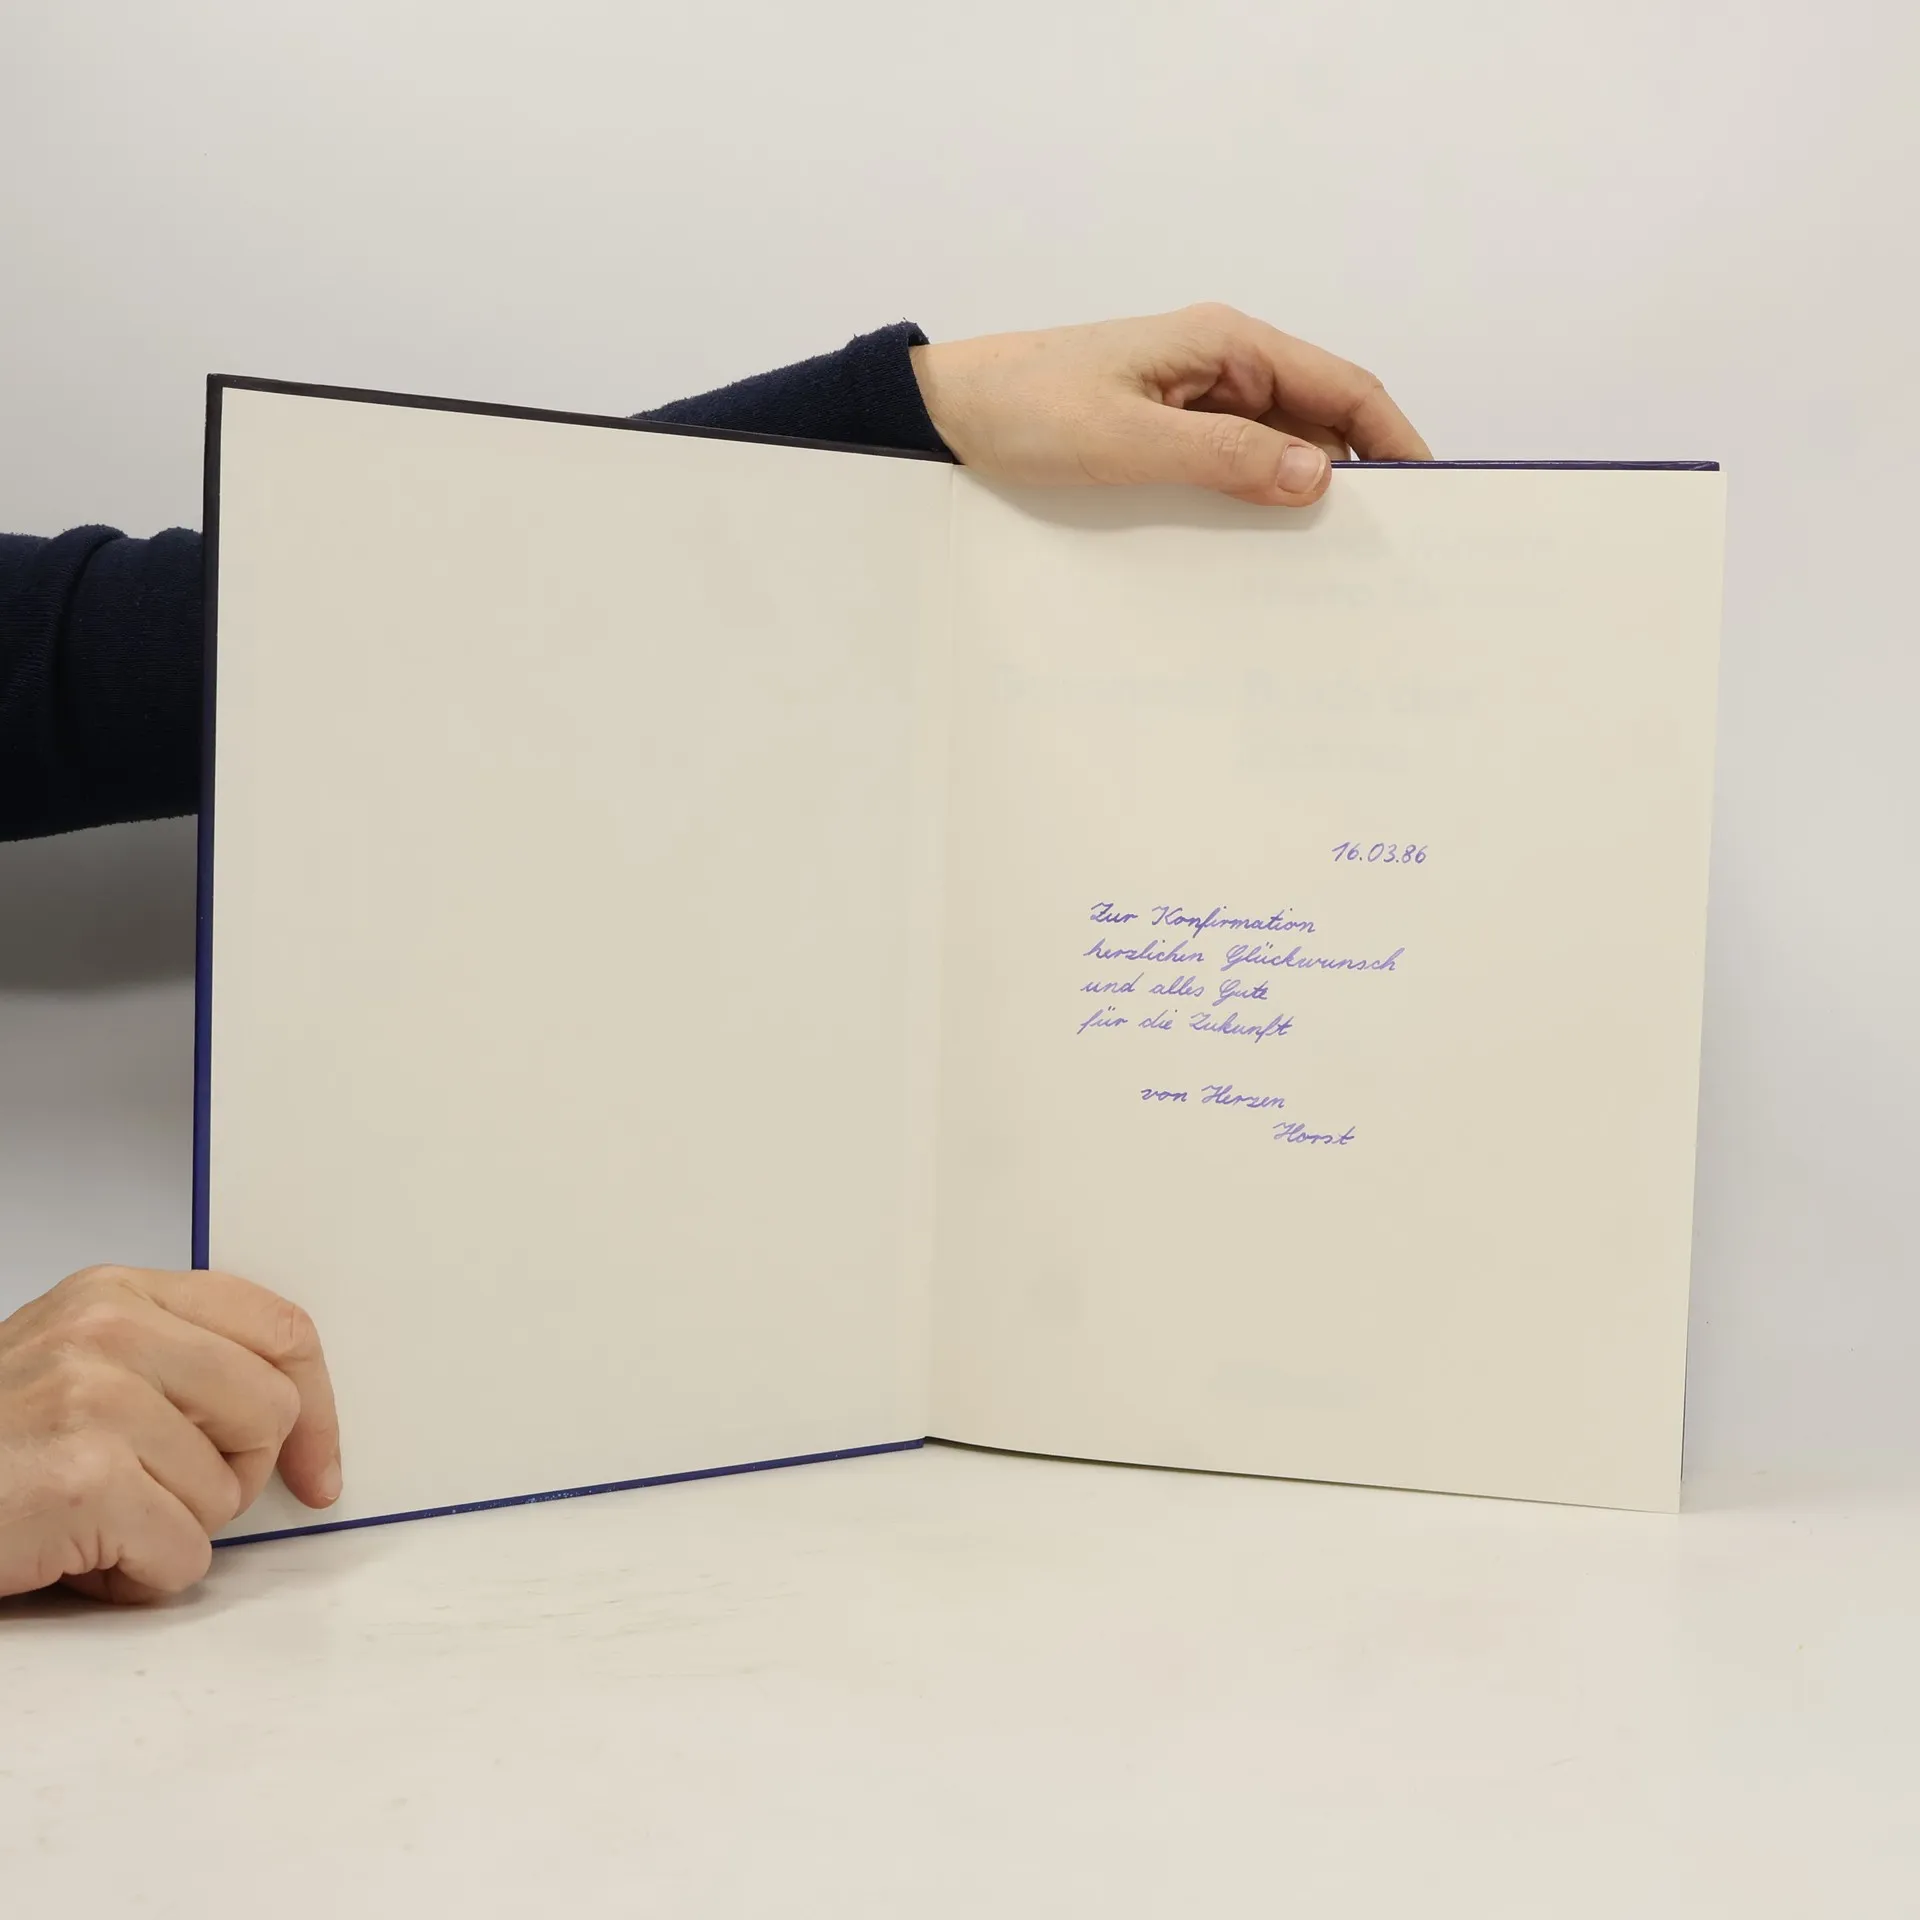 16.03.86
Zur Konfirmation
herzlichen Glückwunsch
und alles Gute
für die Zukunft
von Herzen
Horst